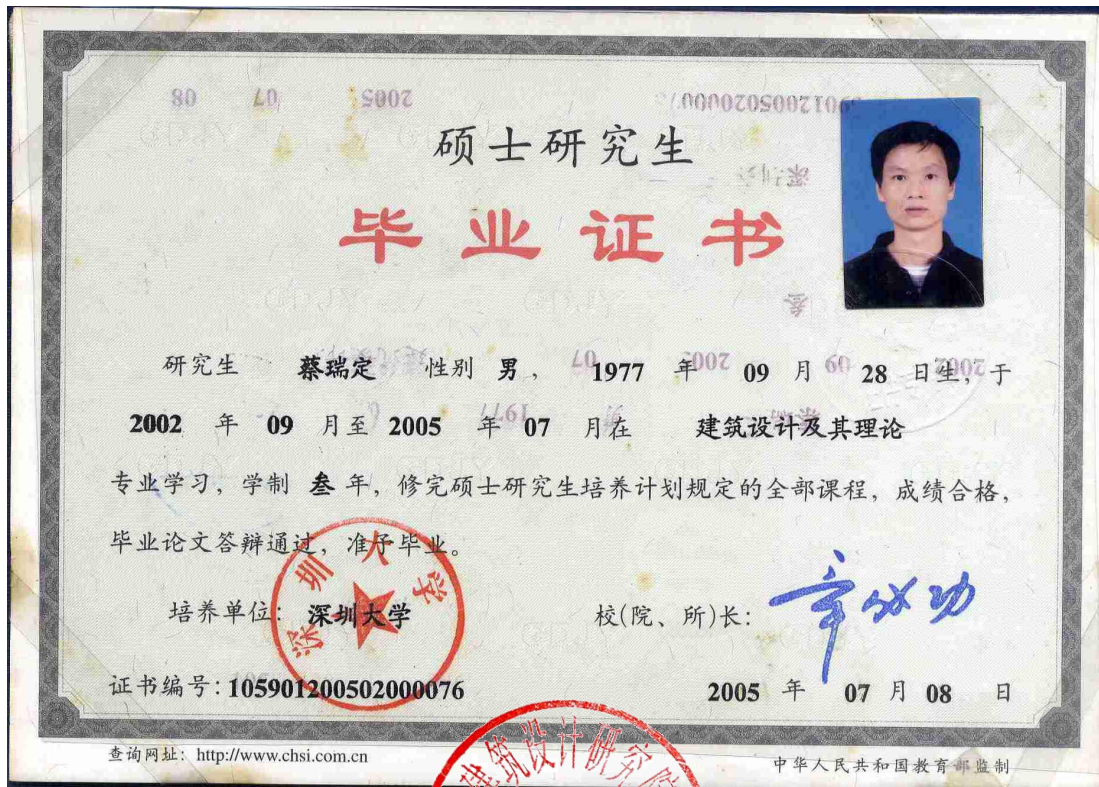 硕士研究生
毕业证书
研究生 蔡瑞定 性别 男， 1977 年 09 月 28 日生，于
2002 年 09 月至 2005 年 07 月在 建筑设计及其理论
专业学习，学制 叁 年，修完硕士研究生培养计划规定的全部课程，成绩合格，
毕业论文答辩通过，准予毕业。
培养单位：深圳大学 校(院、所)长：章必功
深圳大学
证书编号：105901200502000076 2005 年 07 月 08 日
建筑设计研究院
查询网址：http://www.chsi.com.cn 中华人民共和国教育部监制